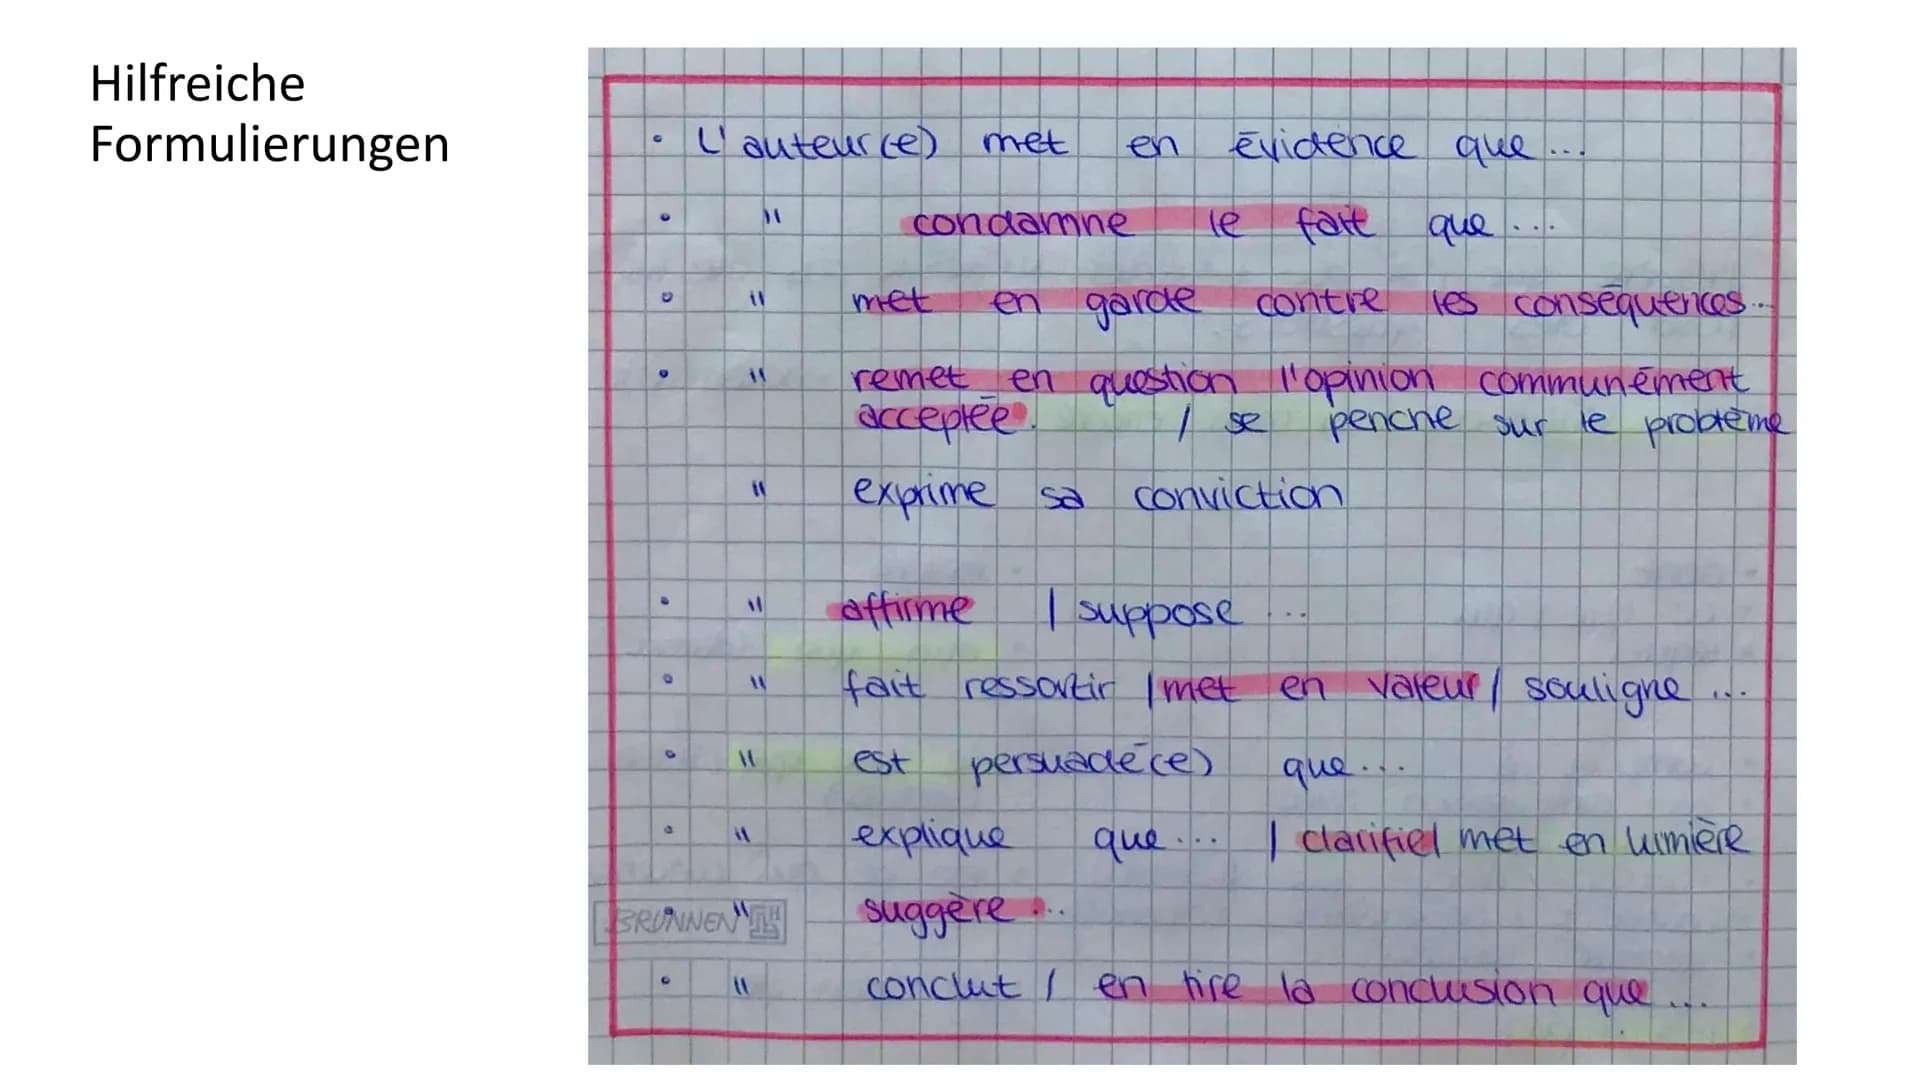 Hilfreiche
Formulierungen
• L'auteur(e) met en évidence que...
• " condamne le fait que...
• " met en garde contre les conséquences...
• " remet en question l'opinion communément
acceptée. / se penche sur le problème
" exprime sa conviction
• " affirme / suppose ...
• " fait ressortir / met en valeur / souligne ...
• " est persuadé(e) que...
• " explique que... / clarifie / met en lumière
• " suggère ...
BRUNNEN
• " conclut / en tire la conclusion que ...